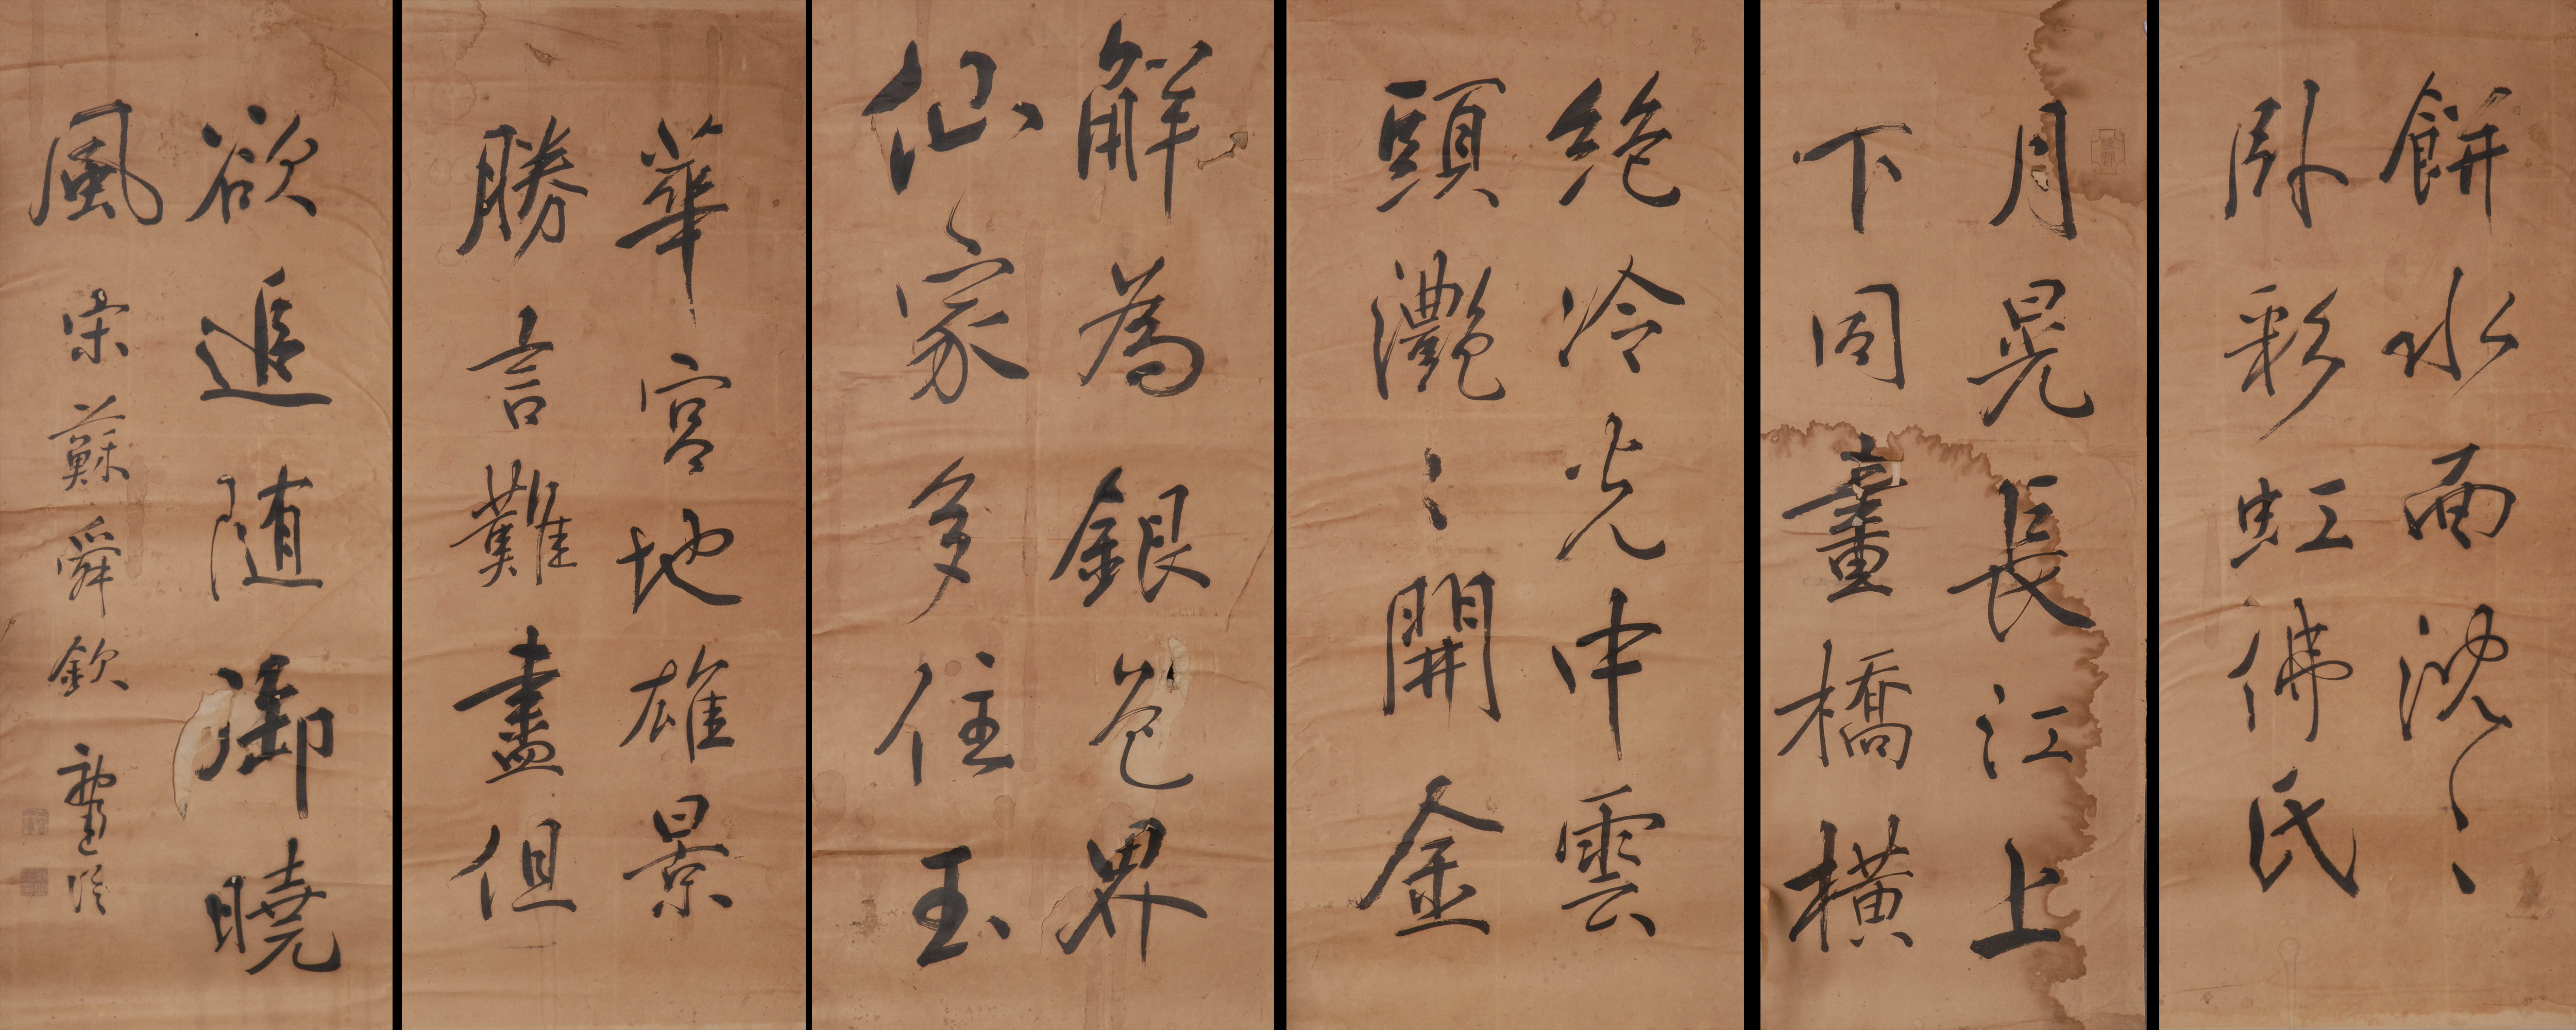 餅水面沈〻
臥彩虹佛氏
月晃長江上
下同畫橋橫
絶冷光中雲
頭灩〻開金
解為銀色界
仙家多住玉
華宮地雄景
勝言難盡但
欲追随御曉
風 宋蘇舜欽